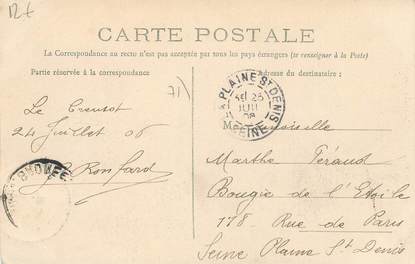 12t
CARTE POSTALE
La Correspondance au recto n'est pas acceptée par tous les pays étrangers (se renseigner à la Poste)
Partie réservée à la correspondance
Adresse du destinataire :
71)
LA PLAINE St DENIS
25
JUIL
08
SEINE
Le Creusot
24 Juillet 08
Ronfard
Mademoiselle
Marthe Féraud
Bougie de l'Etoile
178 Rue de Paris
Seine Plaine St Denis